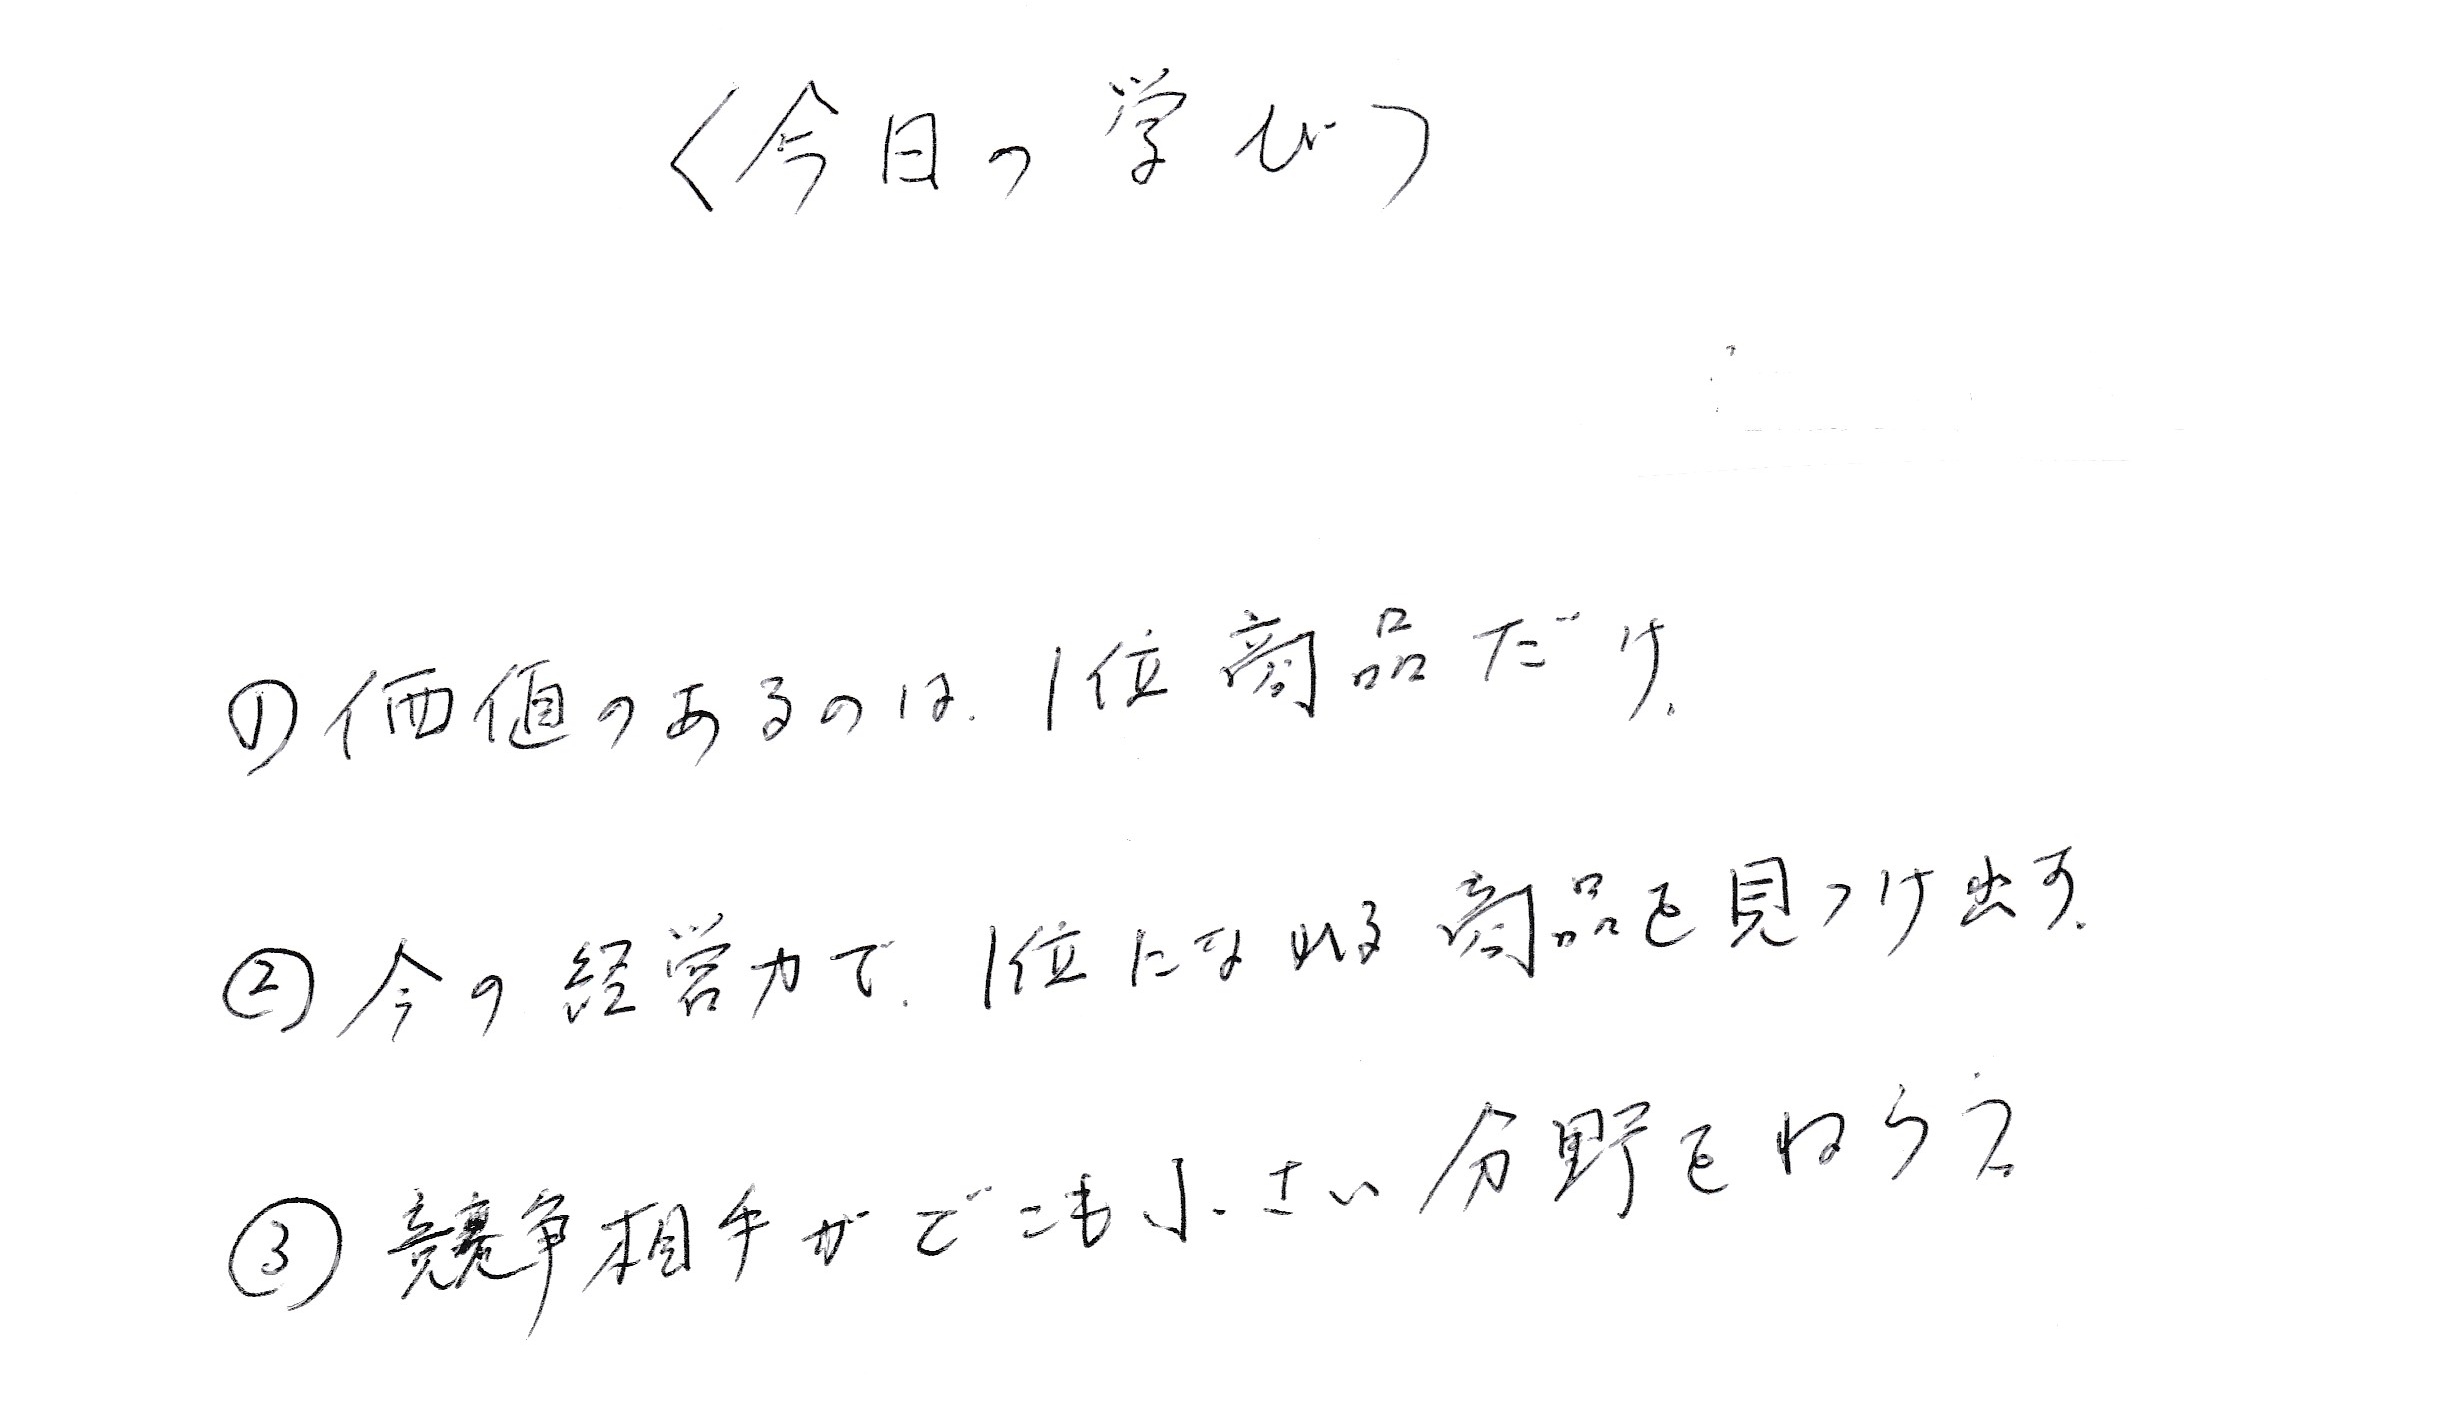 〈今日の学び〉
①価値のあるのは、1位商品だけ。
②今の経営力で、1位になれる商品を見つけ出す。
③競争相手がどこも小さい分野をねらう。